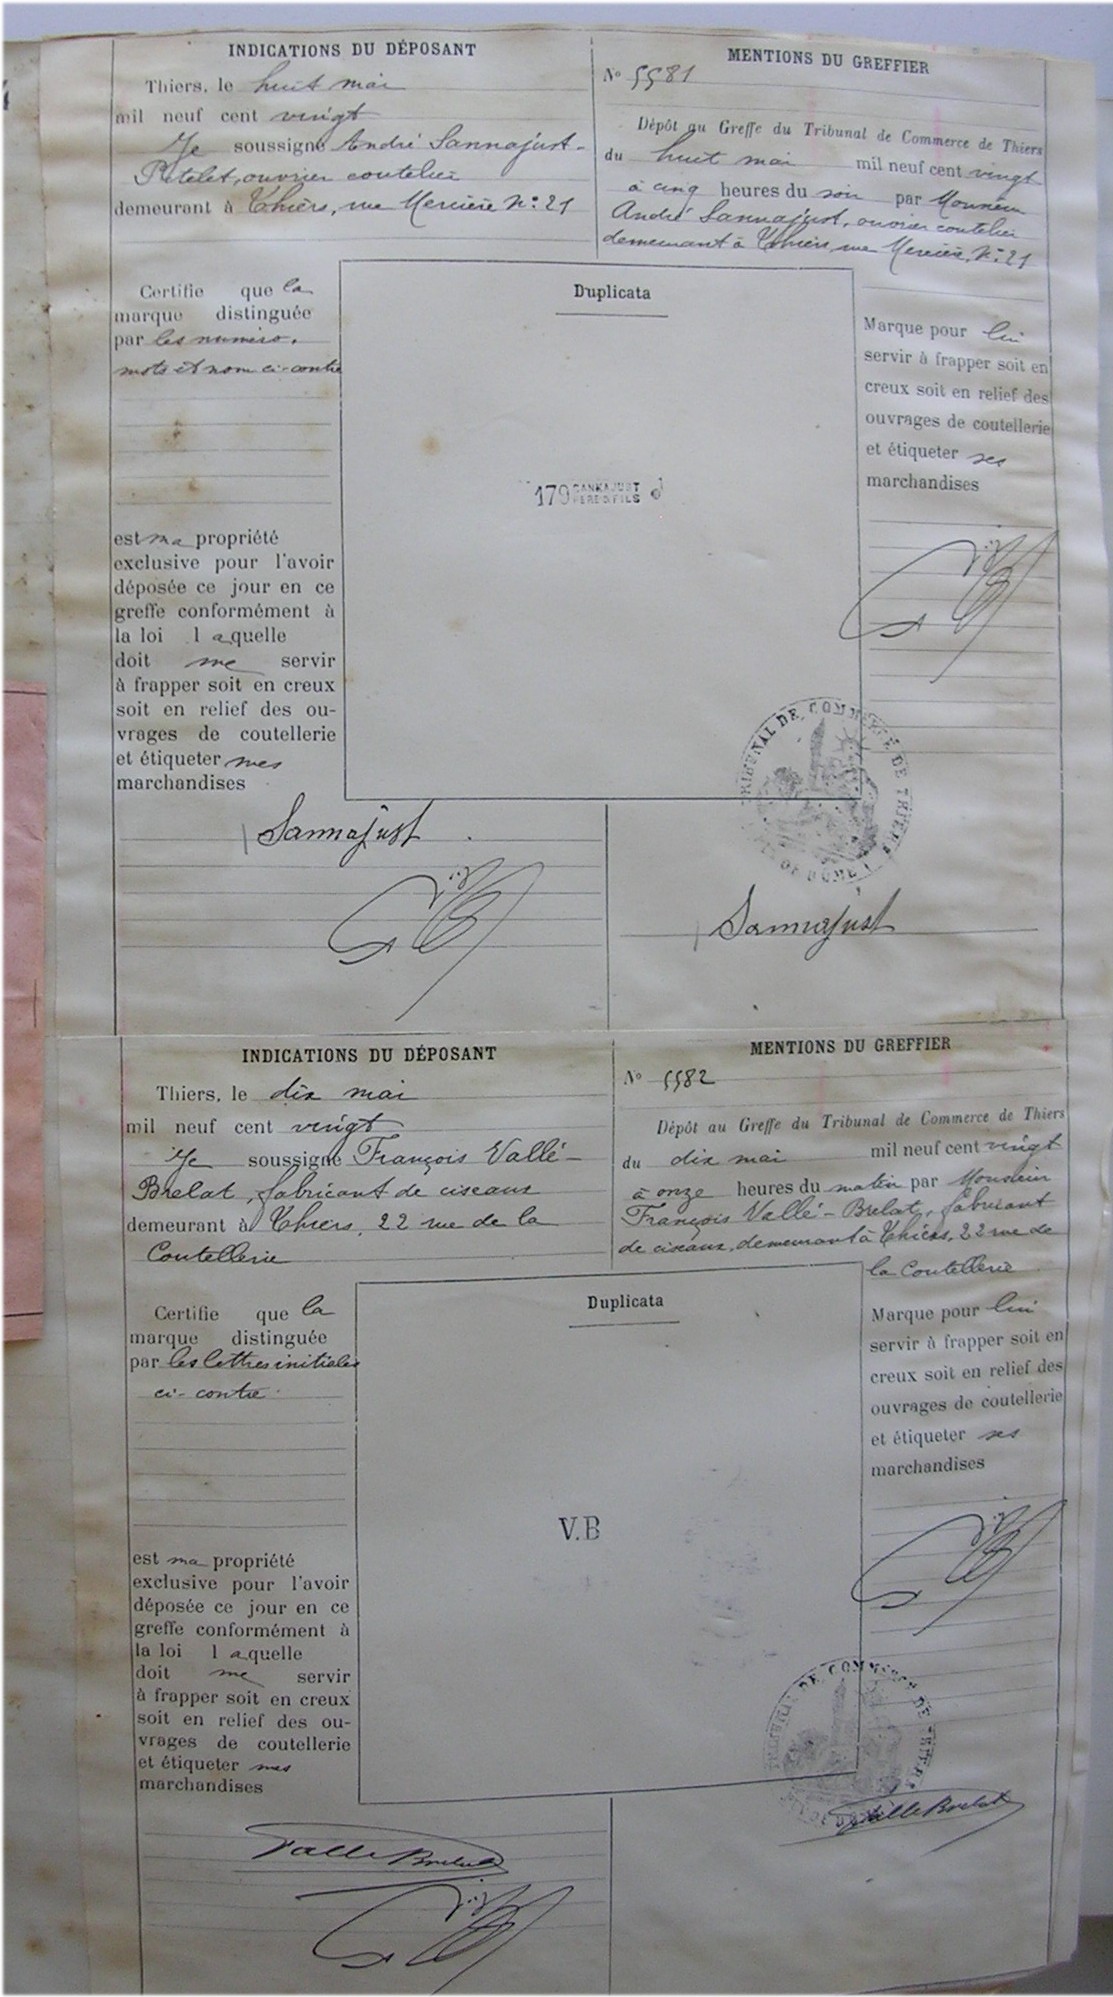 INDICATIONS DU DÉPOSANT
Thiers, le huit mai
mil neuf cent vingt
Je soussigné André Sannajust-
Pitelet, ouvrier coutelier
demeurant à Thiers, rue Mercière N° 21
MENTIONS DU GREFFIER
N° 5581
Dépôt au Greffe du Tribunal de Commerce de Thiers
du huit mai mil neuf cent vingt
à cinq heures du soir par Monsieur
André Sannajust, ouvrier coutelier
demeurant à Thiers, rue Mercière, N° 21
Certifie que la
marque distinguée
par les numéro,
mots et nom ci-contre
est ma propriété
exclusive pour l'avoir
déposée ce jour en ce
greffe conformément à
la loi laquelle
doit me servir
à frapper soit en creux
soit en relief des ou-
vrages de coutellerie
et étiqueter mes
marchandises
Duplicata
179 SANNAJUST
PERE & FILS
Marque pour lui
servir à frapper soit en
creux soit en relief des
ouvrages de coutellerie
et étiqueter ses
marchandises
TRIBUNAL DE COMMERCE DE THIERS
PUY DE DOME
Sannajust
Sannajust
INDICATIONS DU DÉPOSANT
Thiers, le dix mai
mil neuf cent vingt
Je soussigné François Vallé-
Brelat, fabricant de ciseaux
demeurant à Thiers, 22 rue de la
Coutellerie
MENTIONS DU GREFFIER
N° 5582
Dépôt au Greffe du Tribunal de Commerce de Thiers
du dix mai mil neuf cent vingt
à onze heures du matin par Monsieur
François Vallé-Brelat, fabricant
de ciseaux, demeurant à Thiers, 22 rue de
la Coutellerie
Certifie que la
marque distinguée
par les lettres initiales
ci-contre
est ma propriété
exclusive pour l'avoir
déposée ce jour en ce
greffe conformément à
la loi laquelle
doit me servir
à frapper soit en creux
soit en relief des ou-
vrages de coutellerie
et étiqueter mes
marchandises
Duplicata
V.B
Marque pour lui
servir à frapper soit en
creux soit en relief des
ouvrages de coutellerie
et étiqueter ses
marchandises
TRIBUNAL DE COMMERCE DE THIERS
Vallé Brelat
Vallé Brelat